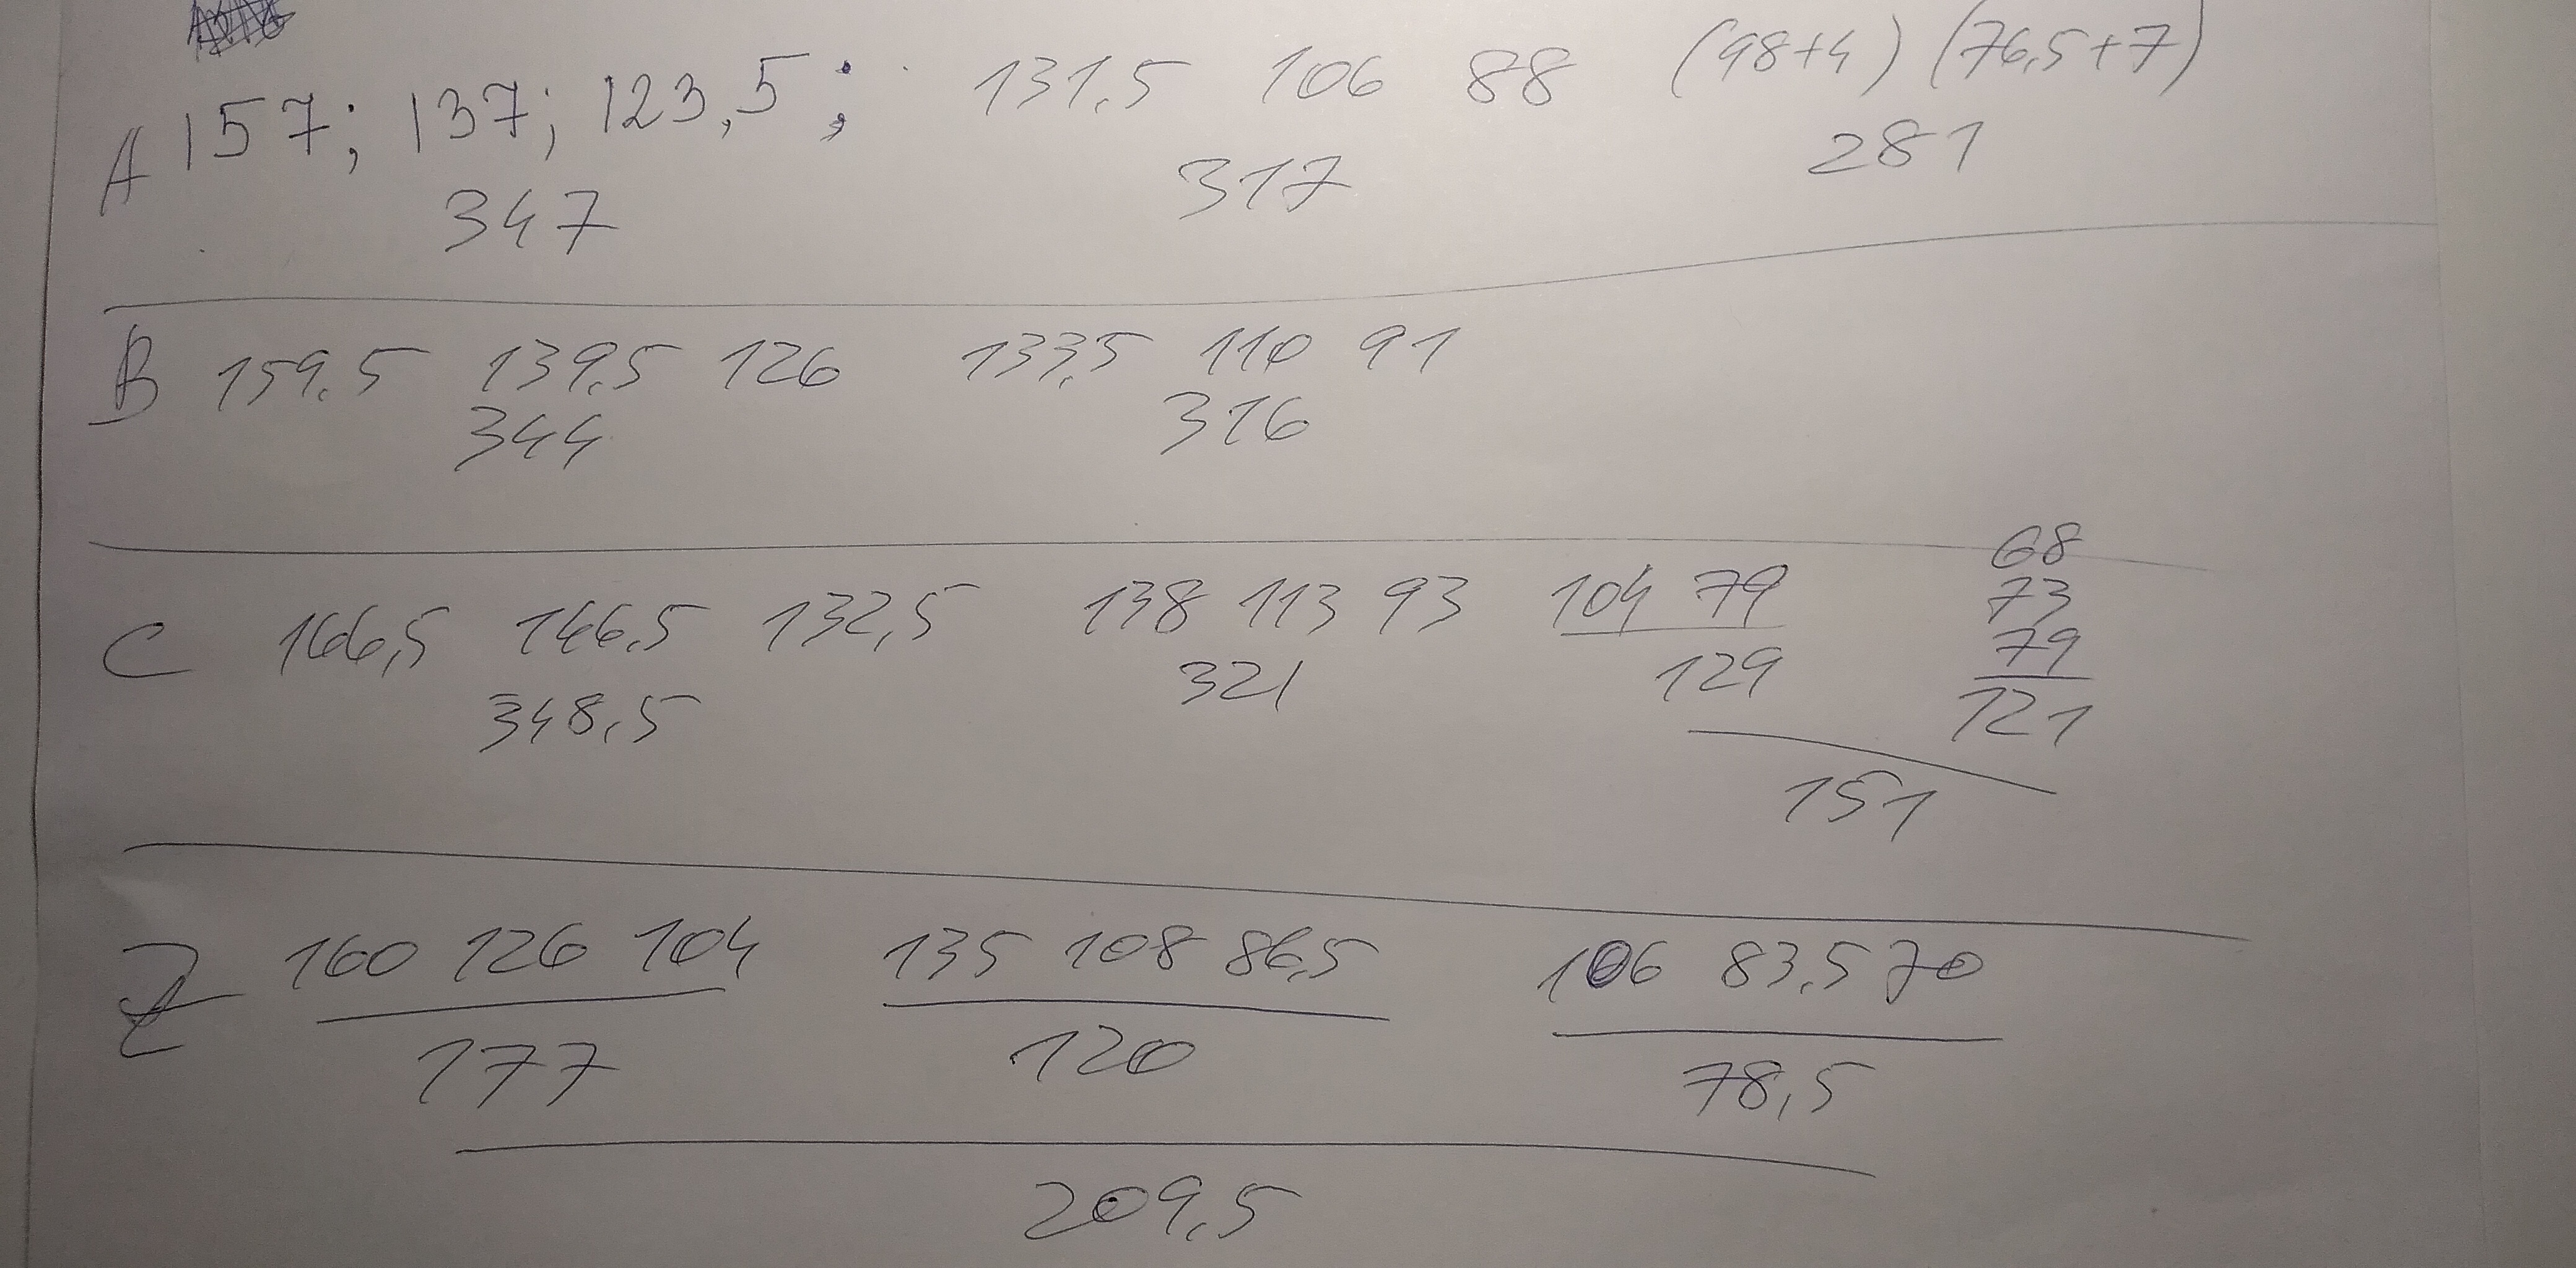 A 157; 137; 123,5; 131,5 106 88 (98+4) (76,5+7)
347 317 281
B 159,5 139,5 126 133,5 110 91
344 316
68
C 166,5 146,5 132,5 138 113 93 104 79 73
79
348,5 321 129 121
151
Z 160 126 104 135 108 86,5 106 83,5 70
177 120 78,5
209,5